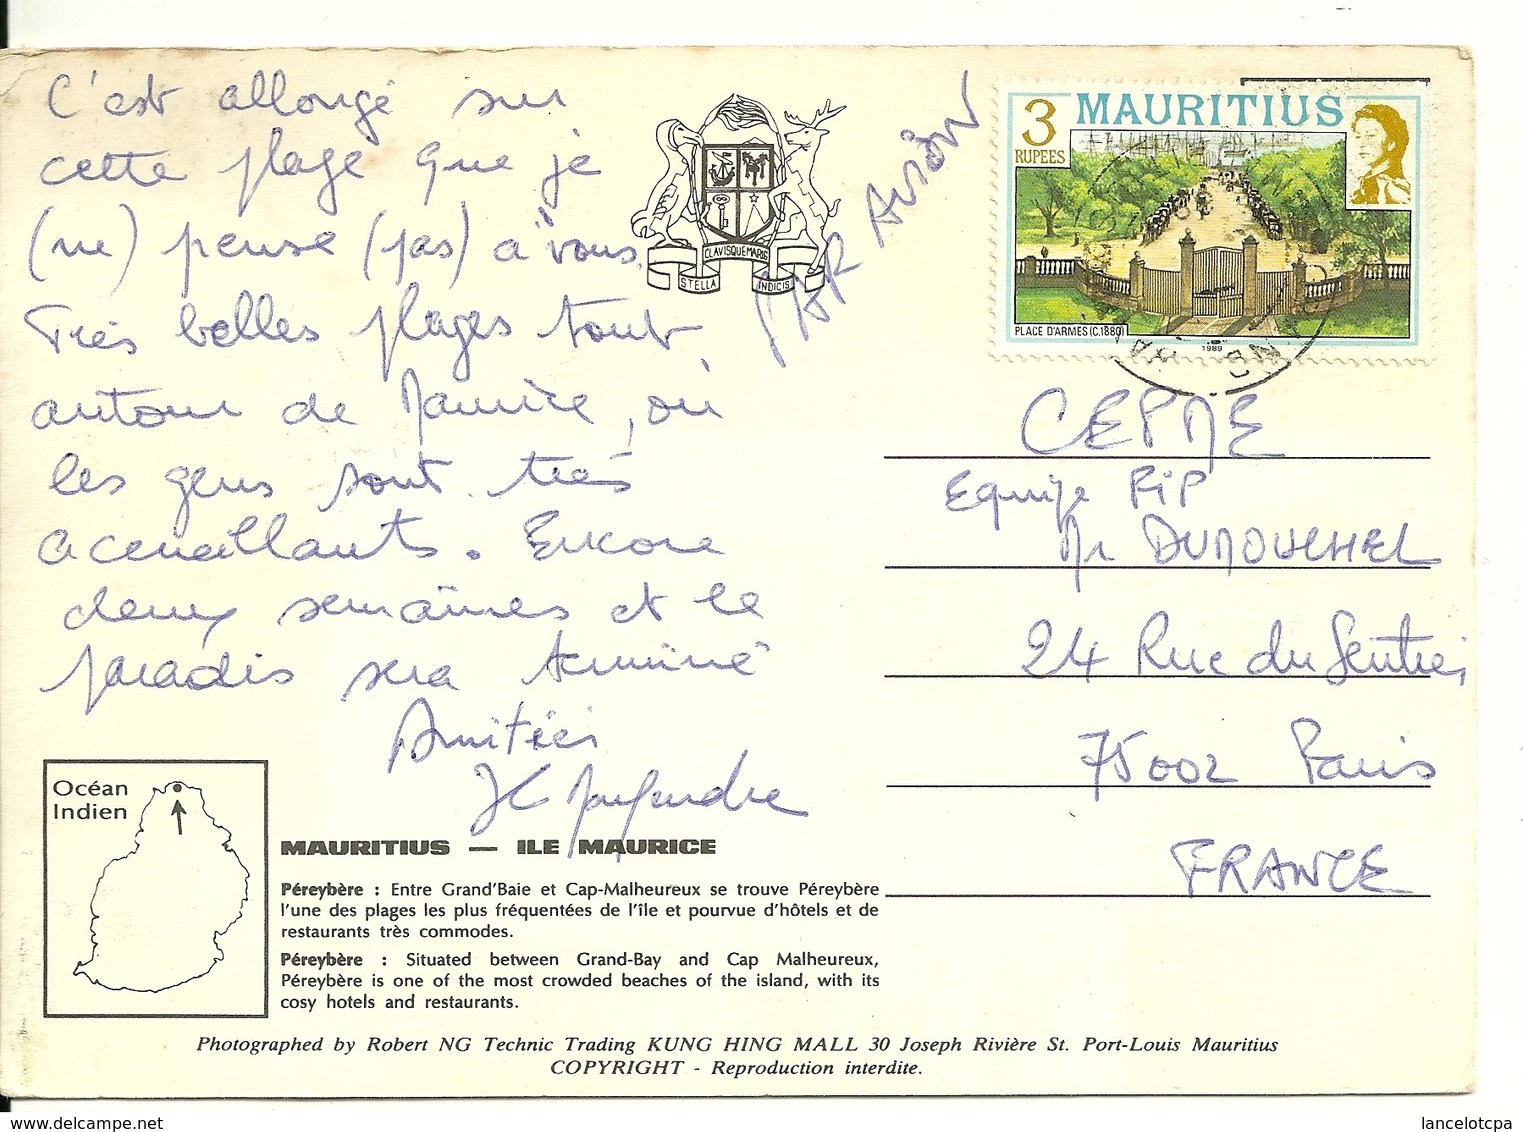 C'est allongé sur
cette plage que je
(ne) pense (pas) à vous.
Très belles plages tout
autour de Maurice, où
les gens sont très
acceuillants. Encore
deux semaines et le
paradis sera terminé
Amitiés
JC
PAR AVION
CLAVISQUE MARIS
STELLA INDICIS
3 MAURITIUS
RUPEES
PLACE D'ARMES (C.1880)
1989
CEPME
Equipe FIP
Mr DUMOUCHEL
24 Rue du Sentier
75002 Paris
FRANCE
Océan
Indien
MAURITIUS — ILE MAURICE
Péreybère : Entre Grand'Baie et Cap-Malheureux se trouve Péreybère
l'une des plages les plus fréquentées de l'île et pourvue d'hôtels et de
restaurants très commodes.
Péreybère : Situated between Grand-Bay and Cap Malheureux,
Péreybère is one of the most crowded beaches of the island, with its
cosy hotels and restaurants.
Photographed by Robert NG Technic Trading KUNG HING MALL 30 Joseph Rivière St. Port-Louis Mauritius
COPYRIGHT - Reproduction interdite.
www.delcampe.net
lancelotcpa